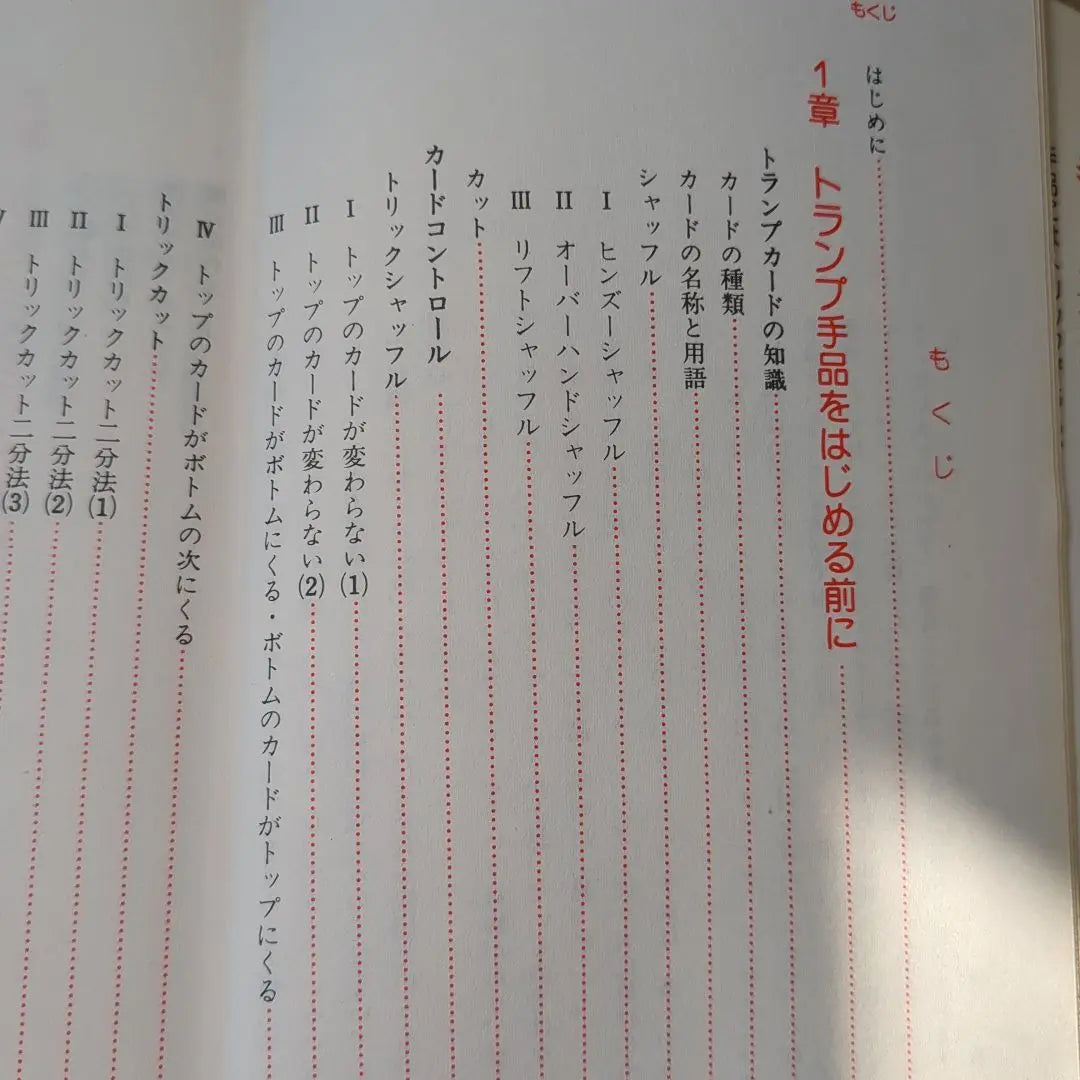 もくじ
もくじ
はじめに
1章 トランプ手品をはじめる前に
トランプカードの知識
カードの種類
カードの名称と用語
シャッフル
Ⅰ ヒンズーシャッフル
Ⅱ オーバーハンドシャッフル
Ⅲ リフトシャッフル
カット
カードコントロール
トリックシャッフル
Ⅰ トップのカードが変わらない(1)
Ⅱ トップのカードが変わらない(2)
Ⅲ トップのカードがボトムにくる・ボトムのカードがトップにくる
Ⅳ トップのカードがボトムの次にくる
トリックカット
Ⅰ トリックカット二分法(1)
Ⅱ トリックカット二分法(2)
Ⅲ トリックカット二分法(3)